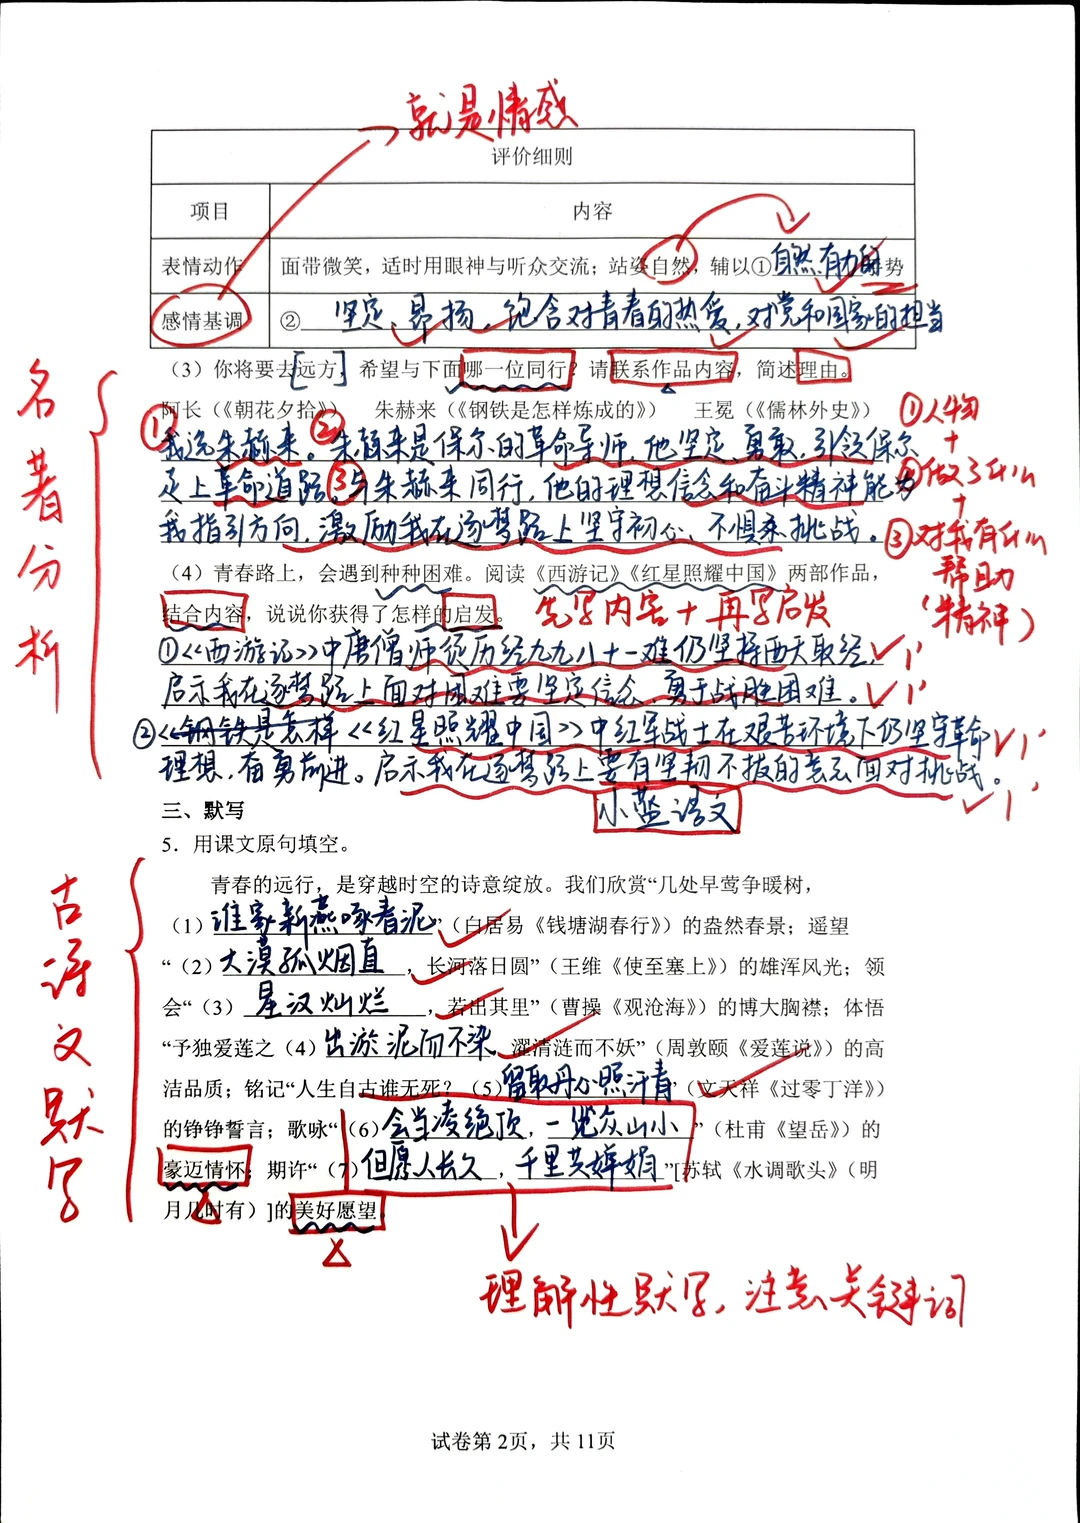 就是情感
评价细则
项目 内容
表情动作 面带微笑，适时用眼神与听众交流；站姿自然，辅以①自然、有力的手势
感情基调 ②坚定、昂扬，饱含对青春的热爱，对党和国家的担当
名著分析
（3）你将要去[远方]，希望与下面哪一位同行？请联系作品内容，简述理由。
阿长（《朝花夕拾》） 朱赫来（《钢铁是怎样炼成的》） 王冕（《儒林外史》）
①人物
+
②做了什么
+
③对我有什么
帮助
（精神）
①我选朱赫来。②朱赫来是保尔的革命导师，他坚定、勇敢，引领保尔
走上革命道路。③与朱赫来同行，他的理想信念和奋斗精神能为
我指引方向，激励我在逐梦路上坚守初心、不惧来挑战。
（4）青春路上，会遇到种种困难。阅读《西游记》《红星照耀中国》两部作品，
结合内容，说说你获得了怎样的启发。
先写内容+再写启发
①《西游记》中唐僧师徒历经九九八十一难仍坚持西天取经，✓1'
启示我在逐梦路上面对困难要坚定信念，勇于战胜困难。✓1'
②《钢铁是怎样《红星照耀中国》中红军战士在艰苦环境下仍坚守革命✓1'
理想，奋勇前进。启示我在逐梦路上要有坚韧不拔的意志面对挑战。✓1'
小蓝语文
三、默写
古诗文默写
5．用课文原句填空。
青春的远行，是穿越时空的诗意绽放。我们欣赏“几处早莺争暖树，
（1）谁家新燕啄春泥”（白居易《钱塘湖春行》）的盎然春景；遥望
“（2）大漠孤烟直，长河落日圆”（王维《使至塞上》）的雄浑风光；领
会“（3）星汉灿烂，若出其里”（曹操《观沧海》）的博大胸襟；体悟
“予独爱莲之（4）出淤泥而不染，濯清涟而不妖”（周敦颐《爱莲说》）的高
洁品质；铭记“人生自古谁无死？（5）留取丹心照汗青”（文天祥《过零丁洋》）
的铮铮誓言；歌咏“（6）会当凌绝顶，一览众山小”（杜甫《望岳》）的
豪迈情怀；期许“（7）但愿人长久，千里共婵娟”[苏轼《水调歌头》（明
月几时有）]的美好愿望。
理解性默写，注意关键词
试卷第 2页，共 11页